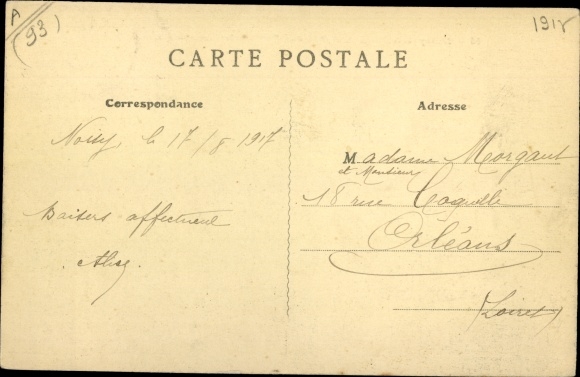 A
93)
1917
CARTE POSTALE
Correspondance
Adresse
Noisy, le 17/8 1917
Madame Morgant
et Monsieur
18 rue Coquille
Baisers affectueux
Orléans
(Loiret)